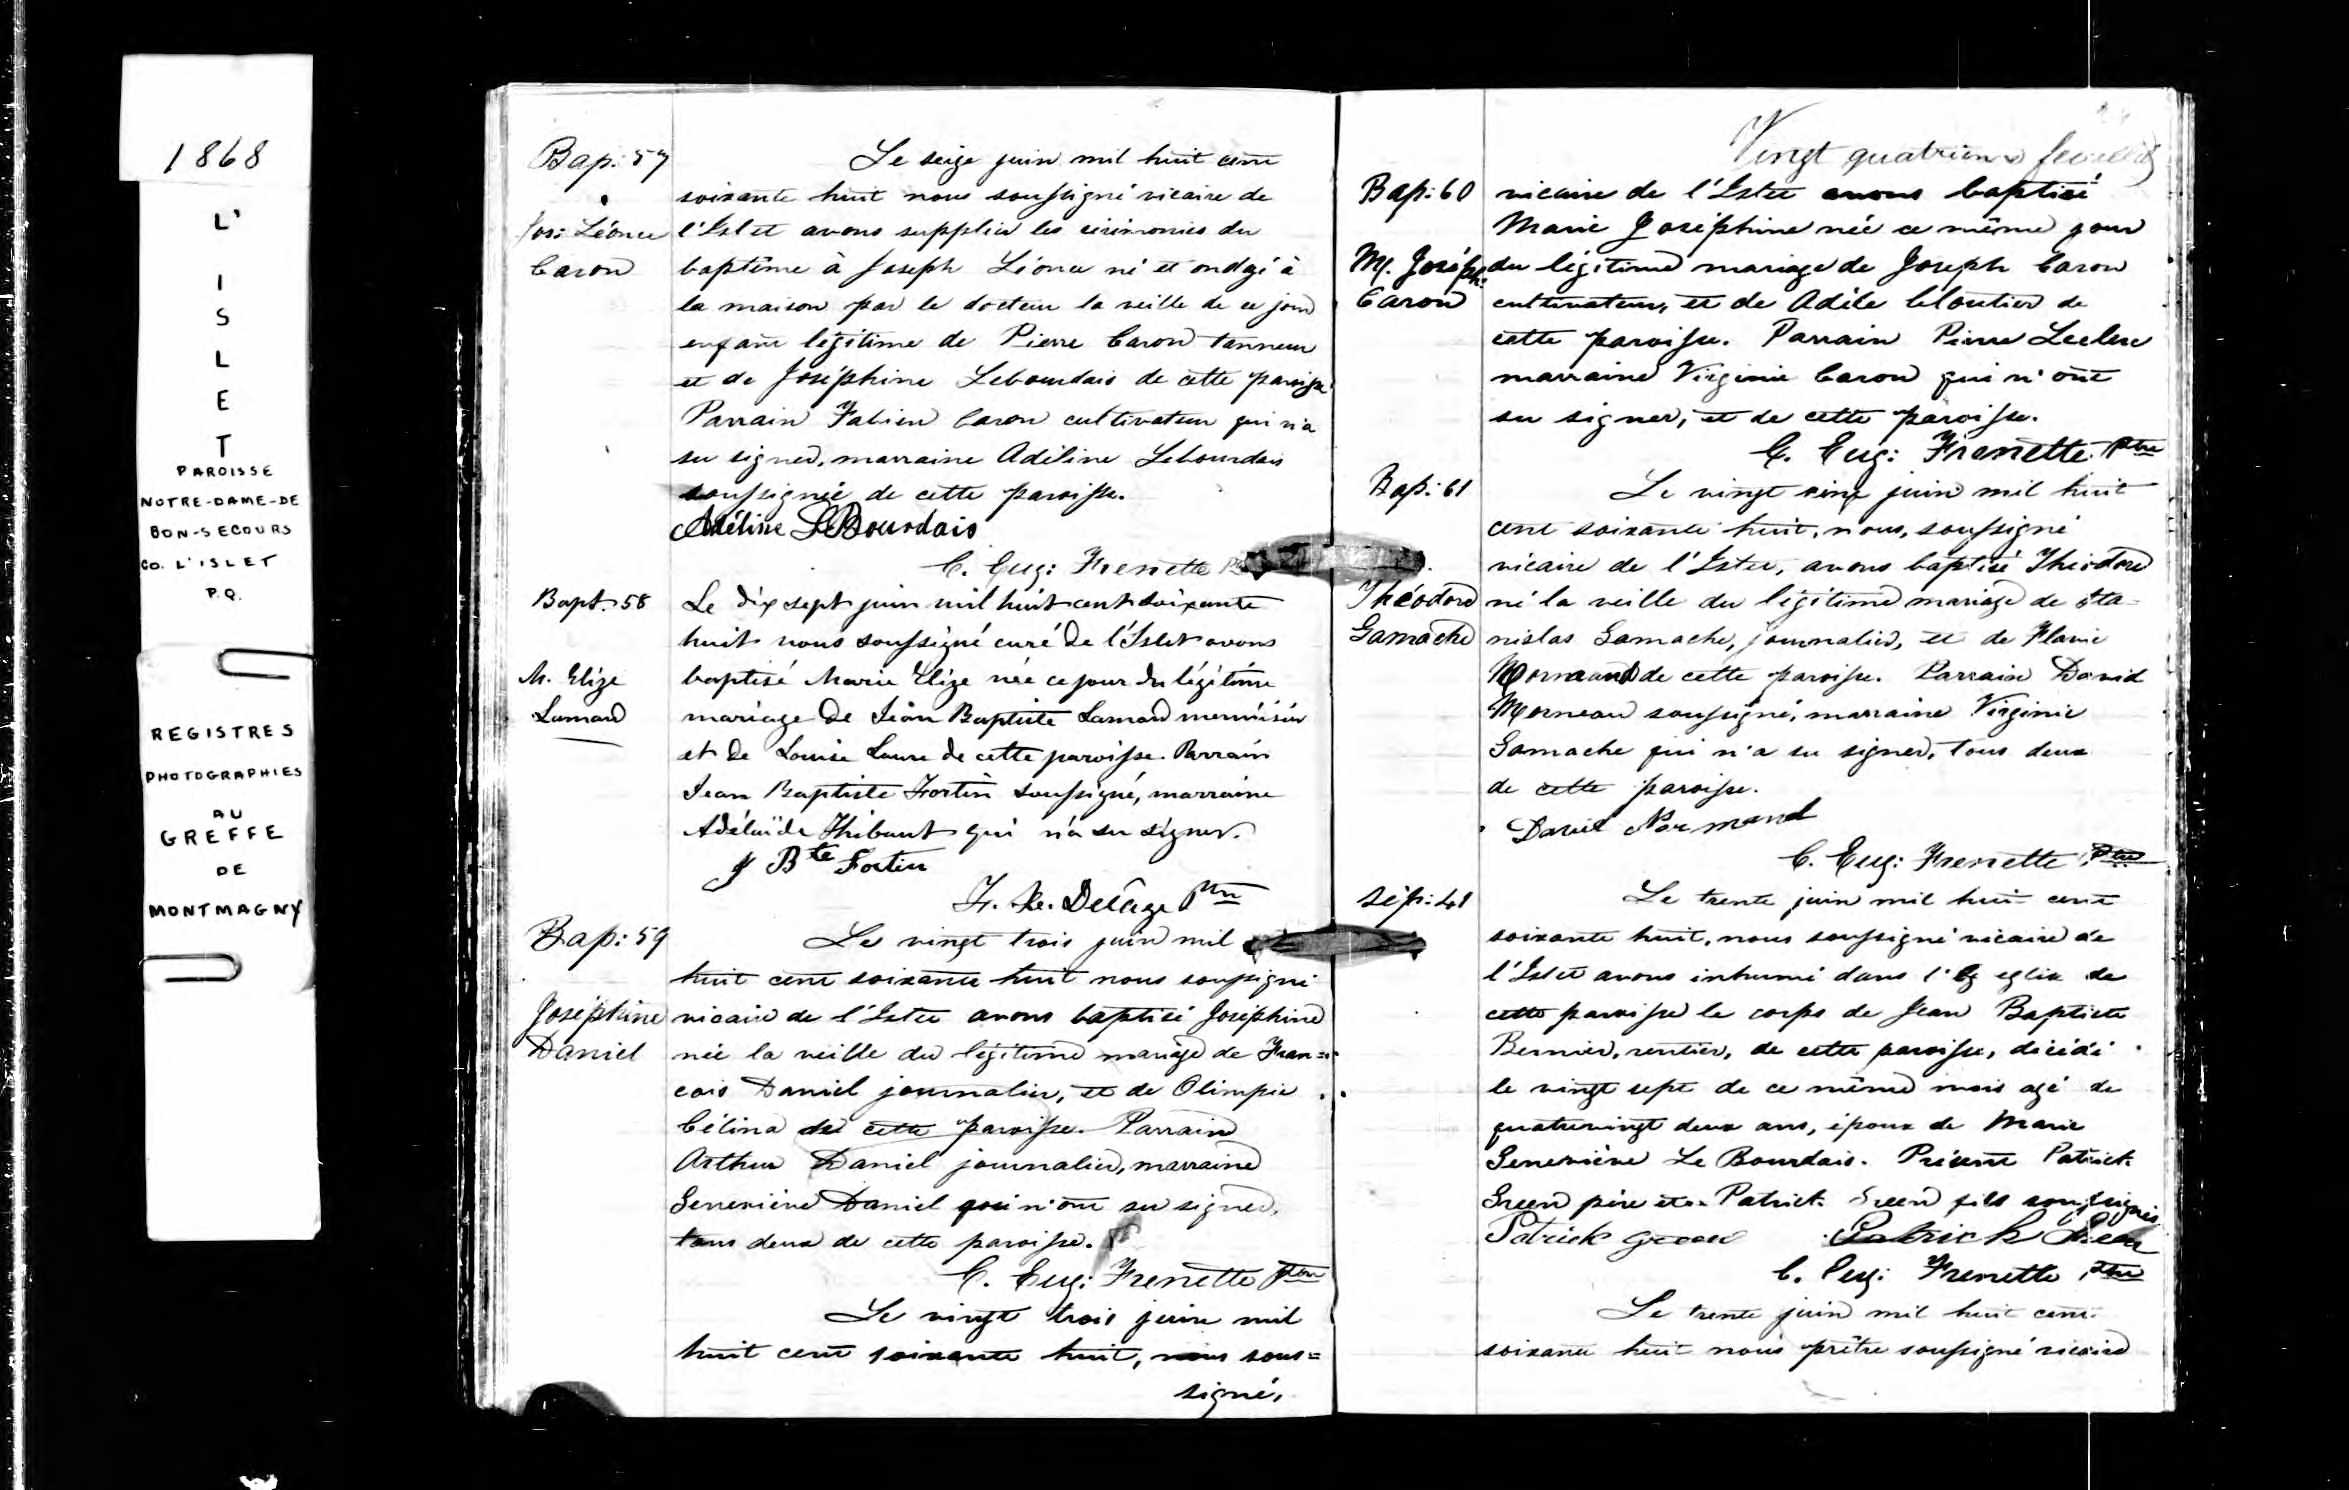 1868
L'
I
S
L
E
T
PAROISSE
NOTRE-DAME-DE
BON-SECOURS
CO. L'ISLET
P.Q.
REGISTRES
PHOTOGRAPHIES
AU
GREFFE
DE
MONTMAGNY
Bap: 57
Jos: Léonce
Caron
Le seize juin mil huit cent
soixante huit nous soussigné vicaire de
l'Islet avons supplier les cérémonies du
baptême à Joseph Léonce né et ondoyé à
la maison par le docteur la veille de ce jour
enfant légitime de Pierre Caron tanneur
et de Joséphine Lebourdais de cette paroisse
Parrain Fabien Caron cultivateur qui n'a
su signer, marraine Adéline Lebourdais
soussignée de cette paroisse.
Adéline LeBourdais
C. Eug: Frenette
Bapt. 58
M. Elize
Lamard
Le dix sept juin mil huit cent soixante
huit nous soussigné curé de l'Islet avons
baptisé Marie Elize née ce jour du légitime
mariage de Jean Baptiste Lamard menuisier
et de Louise Laure de cette paroisse. Parrain
Jean Baptiste Fortin soussigné, marraine
Adélaïde Thibaut qui n'a su signer.
J Bte Fortin
F. X. Delâge Ptre
Bap: 59
Joséphine
Daniel
Le vingt trois juin mil
huit cent soixante huit nous soussigné
vicaire de l'Islet avons baptisé Joséphine
née la veille du légitime mariage de Fran=
cois Daniel journalier, et de Olimpie
Célina de cette paroisse. Parrain
Arthur Daniel journalier, marraine
Geneviève Daniel qui n'ont su signer,
tous deux de cette paroisse.
C. Eug: Frenette Ptre
Le vingt trois juin mil
huit cent soixante huit, nous sous=
signé,
Vingt quatrième feuillet
Bap: 60
M. Joséph:
Caron
vicaire de l'Islet avons baptisé
Marie Joséphine née ce même jour
du légitime mariage de Joseph Caron
cultivateur, et de Adèle Cloutier de
cette paroisse. Parrain Pierre Leclerc
marraine Virginie Caron qui n'ont
su signer, et de cette paroisse.
C. Eug: Frenette Ptre
Bap: 61
Théodore
Gamache
Le vingt cinq juin mil huit
cent soixante huit, nous, soussigné
vicaire de l'Islet, avons baptisé Théodore
né la veille du légitime mariage de Sta-
nislas Gamache, journalier, et de Flavie
de cette paroisse. Parrain David
Morneau soussigné, marraine Virginie
Gamache qui n'a su signer, tous deux
de cette paroisse.
David Normand
C. Eug: Frenette Ptre
Sép: 41
Le trente juin mil huit cent
soixante huit, nous soussigné vicaire de
l'Islet avons inhumé dans l' église de
cette paroisse le corps de Jean Baptiste
Bernier, rentier, de cette paroisse, décédé
le vingt sept de ce même mois agé de
quatrevingt deux ans, époux de Marie
Geneviève Le Bourdais. Présent Patrick
Green père et Patrick Green fils soussignés
Patrick Green Patrick Green
C. Eug: Frenette Ptre
Le trente juin mil huit cent
soixante huit nous prêtre soussigné vicaire